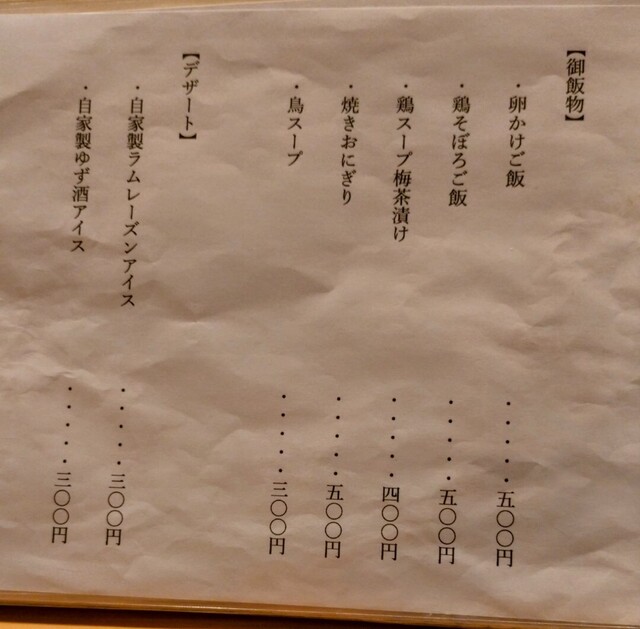 【御飯物】
・卵かけご飯・・・・・五〇〇円
・鶏そぼろご飯・・・・・五〇〇円
・鶏スープ梅茶漬け・・・・・四〇〇円
・焼きおにぎり・・・・・五〇〇円
・鳥スープ・・・・・三〇〇円
【デザート】
・自家製ラムレーズンアイス・・・・・三〇〇円
・自家製ゆず酒アイス・・・・・三〇〇円